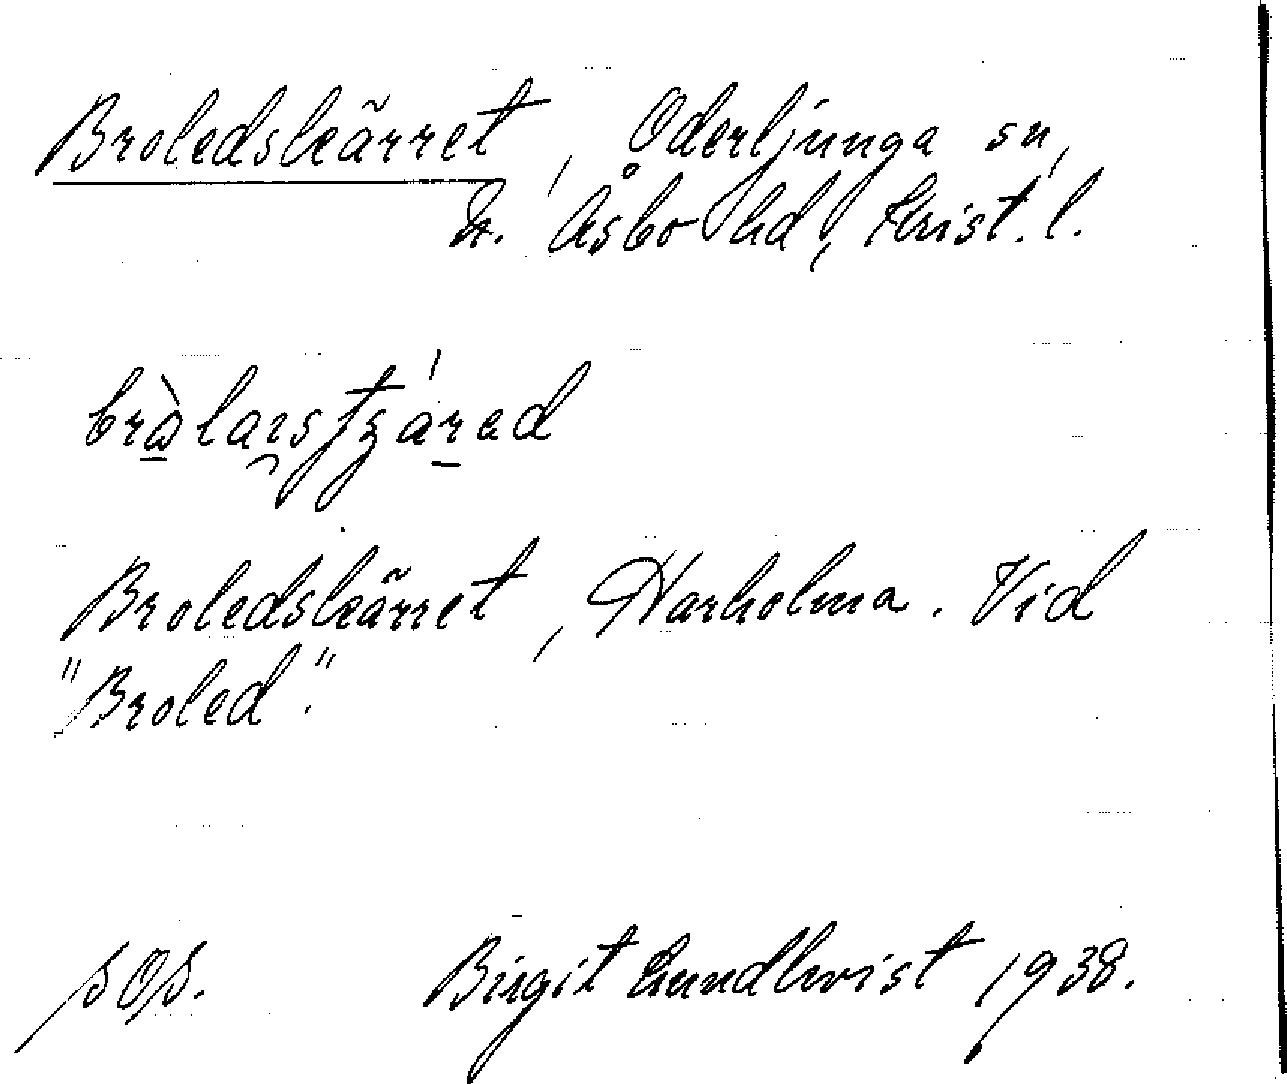 Broledskärret, Oderljunga sn,
N. Åsbo hd, Krist. l.
Broledskärret, Harholma. Vid
"Broled".
SOS. Birgit Lundkvist 1938.